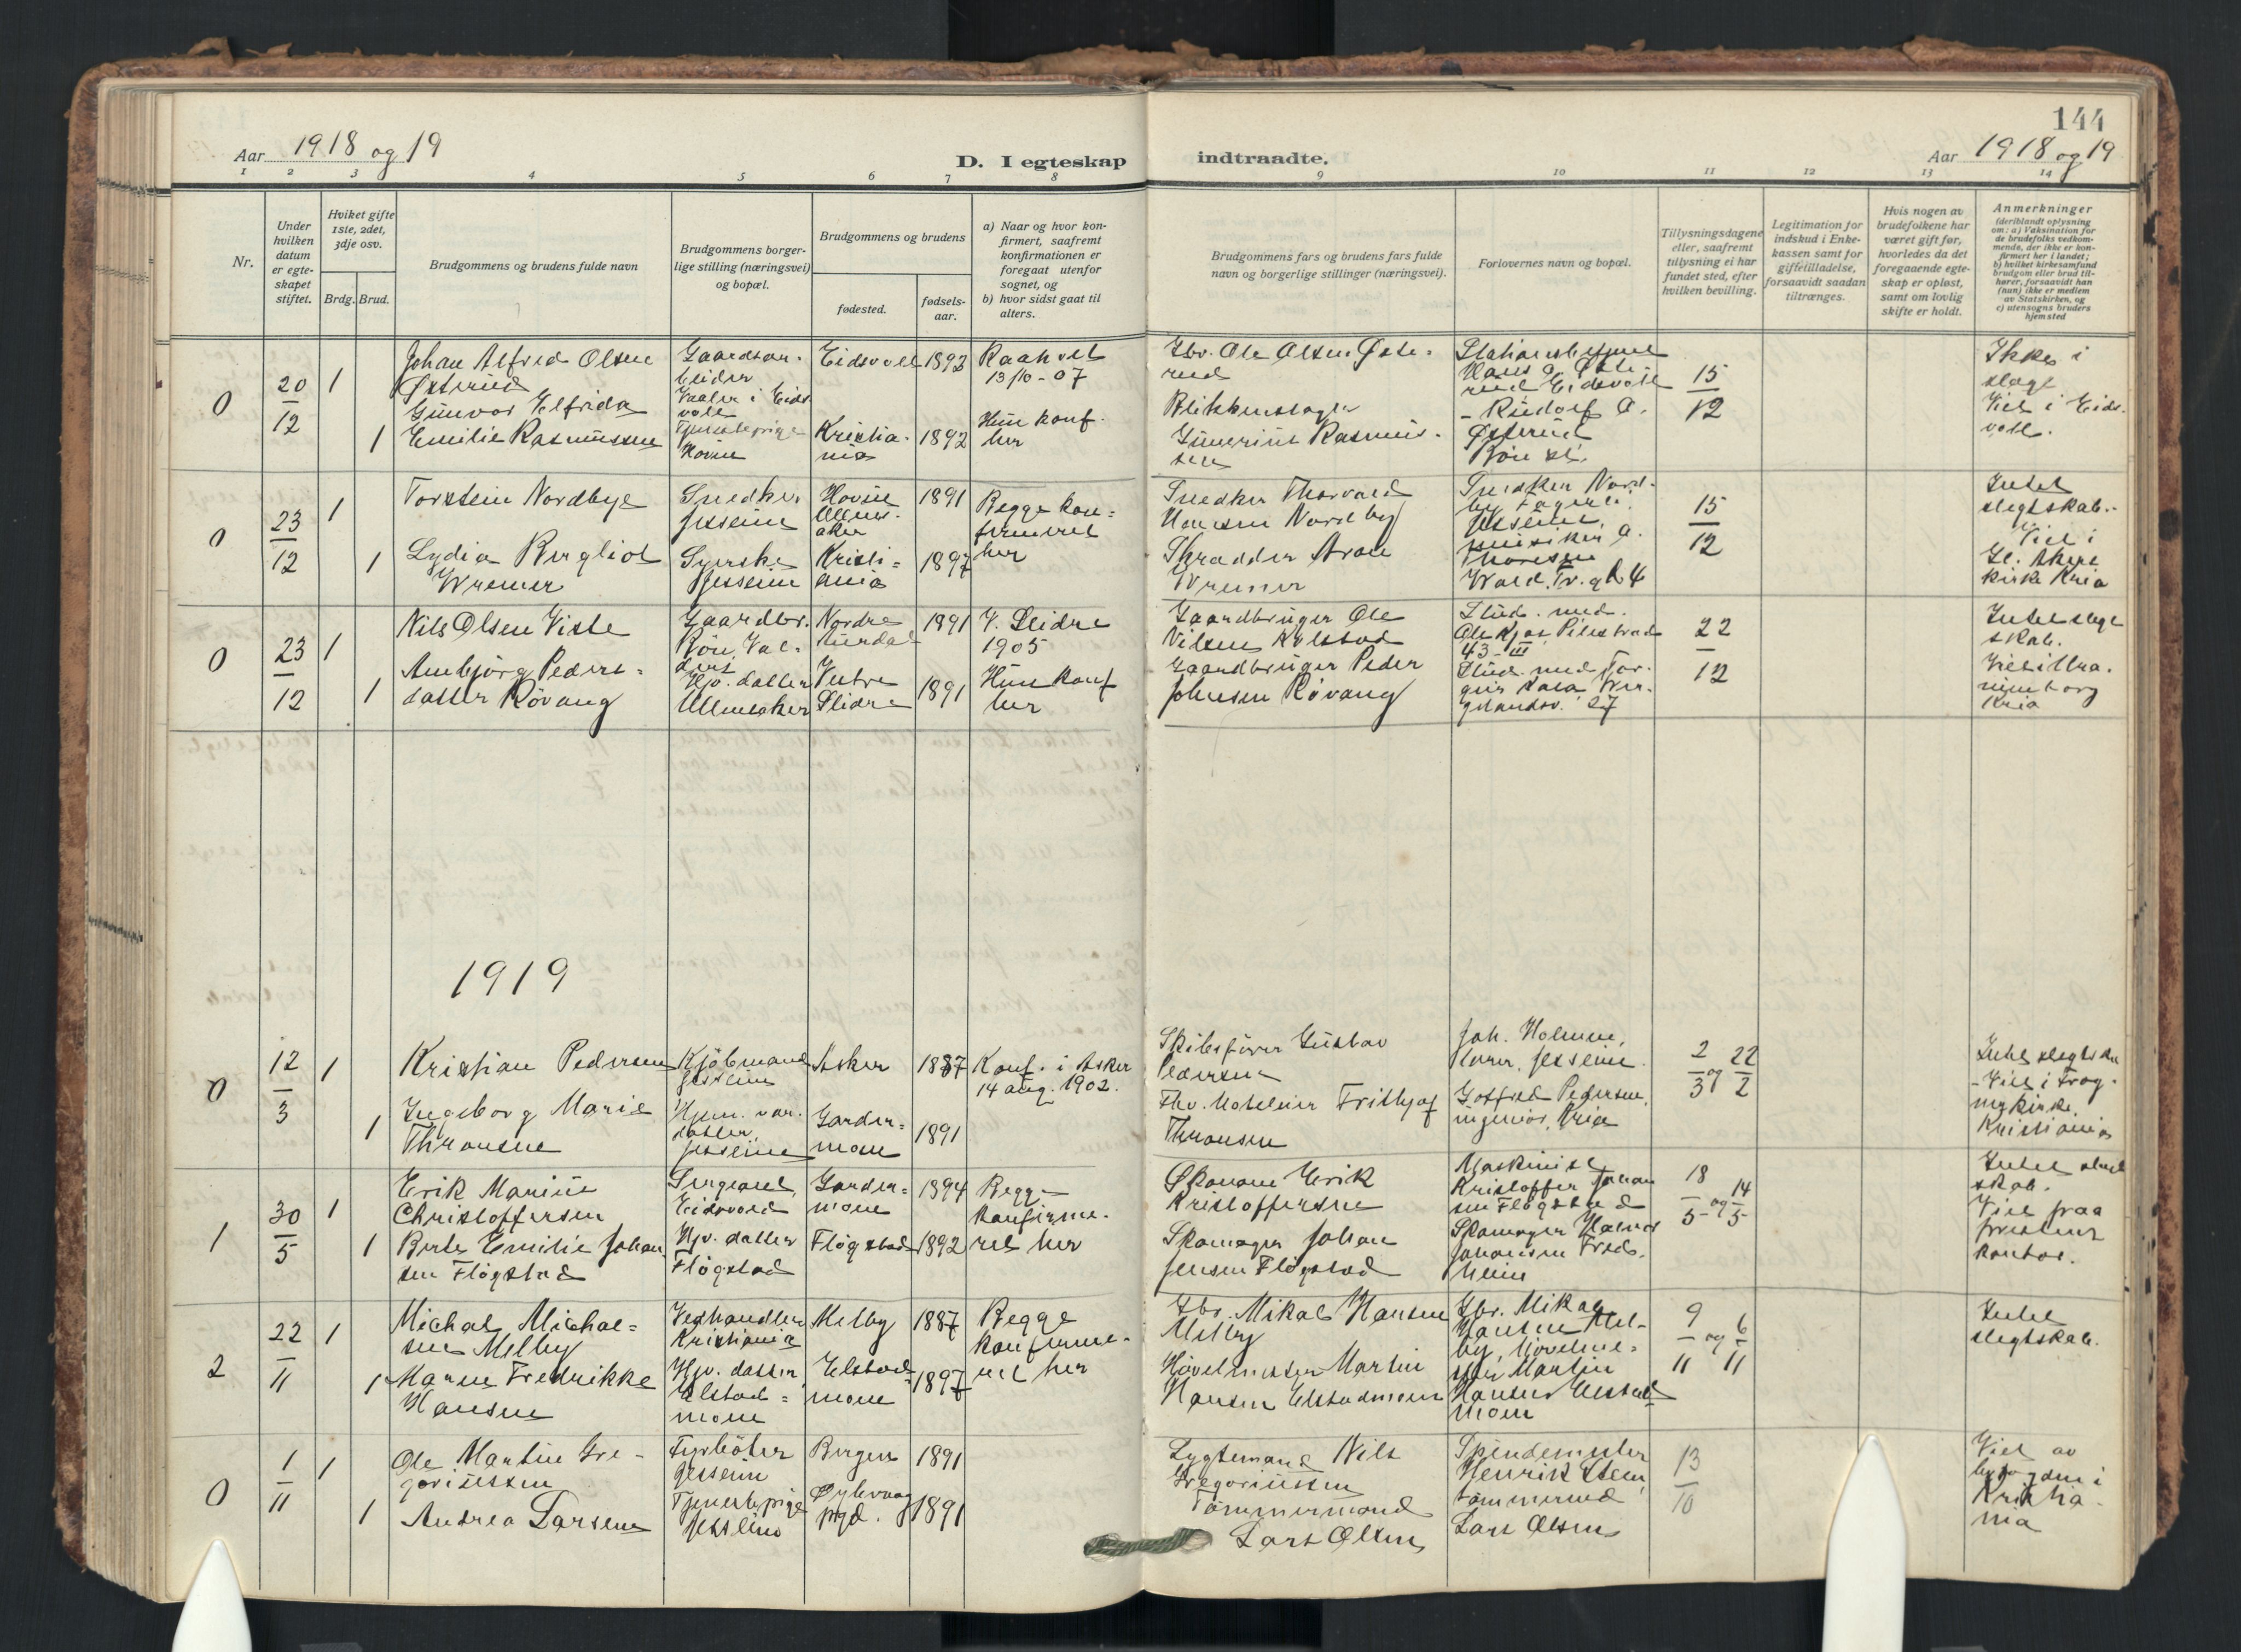 144
Aar 1918 og 19
D. I egteskap
indtraadte.
Aar 1918 og 19
1 2 3 4 5 6 7 8 9 10 11 12 13 14
Nr.
Under hvilken datum er egteskapet stiftet.
Hviket gifte 1ste, 2det, 3dje osv.
Brdg. Brud.
Brudgommens og brudens fulde navn
Brudgommens borgerlige stilling (næringsvei) og bopæl.
Brudgommens og brudens
fødested.
fødselsaar.
a) Naar og hvor konfirmert, saafremt konfirmationen er foregaat utenfor sognet, og
b) hvor sidst gaat til alters.
Brudgommens fars og brudens fars fulde navn og borgerlige stillinger (næringsvei).
Forlovernes navn og bopæl.
Tillysningsdagene eller, saafremt tillysning ei har fundet sted, efter hvilken bevilling.
Legitimation for indskud i Enkekassen samt for giftetilladelse, forsaavidt saadan tiltrænges.
Hvis nogen av brudefolkene har været gift før, hvorledes da det foregaaende egteskap er opløst, samt om lovlig skifte er holdt.
Anmerkninger
(deriblandt oplysning om: a) Vaksination for de brudefolks vedkommende, der ikke er konfirmert her i landet;
b) hvilket kirkesamfund brudgom eller brud tilhører, forsaavidt han (hun) ikke er medlem av Statskirken, og
c) utensogns bruders hjemsted
0
20
12
1
Johan Alfred Olsen
Østerud
Gunvor Elfrida
1 Emilie Rasmussen
Gaardsarbeider
Eidsvoll
Tjenestepige
Kristiania
1893
1892
Raaholt
13/10-07
Hun konf.
her
Gbr. Ole Olsen Østerud
Blikkenslager
Rasmussen
Hans O. Østerud Eidsvoll
- Rudolf O.
Østerud
15
12
Ikke i
slegt
Viet i Eidsvoll.
0
23
12
1
Torstein Nordbye
1
Lydia Bergliot
Wremer
Snedker
Jessheim
Syerske
Jessheim
Hovin
Ullensaker
Kristiania
1891
1897
Begge konfirmeret
her
Snedker Thorvald
Hansen Nordby
Skrædder Aron
Wremer
Snedker Nordby
Jessheim,
15
12
Intet
slegtskab.
Viet i
Gl. Akers
kirke Kria
0
23
12
1
Nils Olsen Viste
1
Ambjørg Pedersdatter Røvang
Gaardbr.
Røn, Valdres
Hjv. datter
Ullensaker
Nordre
Aurdal
Vestre
Slidre
1891
1891
V. Slidre
1905
Hun konf
her
Gaardbruger Ole
Nilsen Kvlstad
Gaardbruger Peder
Johnsen Røvang
Stud. med.
43 III
Stud. med.
27
22
12
Intet slegtskab.
Kria
1919
0
12
3
1
Kristian Pedersen
1
Ingeborg Marie
Thronsen
Kjøbmand
Jessheim
datter
Jessheim
Asker
Gardermoen
1887
1891
Konf. i Asker
14 aug. 1902.
Skibsfører Gustav
Pedersen
Fhv. Hoteleier Frithjof
Thronsen
Joh. Holmen,
Jessheim.
Gotfred Pedersen,
ingeniør, Kria
2
3
og
22
2
- Viet i Frognerkirke.
Kristiania
1
30
5
1
Erik Marius
Christoffersen
1
Berte Emilie Johansen Fløgstad
Sergeant,
Eidsvold
Hjv. datter
Fløgstad
Gardermoen
Fløgstad
1894
1892
Begge
konfirmeret her
Erik
Kristoffersen
Skomager Johan
Jensen Fløgstad
Maskinist
Kristoffer Johansen Fløgstad
Skomager
Johansen
18
5
og
14
5
Intet slegtskab.
Viet paa
prestens
kontor.
2
22
11
1
Michal Michalsen Melby
1
Maren Fredrikke
Hansen
Vedhandler
Kristiania
Hjv. datter
Elstadmoen
Melby
Elstadmoen
1887
1897
Begge
konfirmeret her
Gbr. Mikal Hansen
Melby
Høvelmester Martin
Hansen Elstadmoen
Gbr. Mikal
Hansen Melby, Høvelmester Martin
Hansen Elstadmoen
9
11
og
6
11
Intet
slegtskab.
0
1
11
1
Ole Martin Gregoriussen
1
Andrea Larsen
Fyrbøter
Jessheim
Tjenestepige
Jessheim
Bergen
pgd.
1891
1891
Lygtemand Nils
Gregoriussen
Tømmermand
Lars Olsen
Henrik Steen,
tømmermd
Lars Olsen
13
10
Viet av
byfogden i
Kristiania